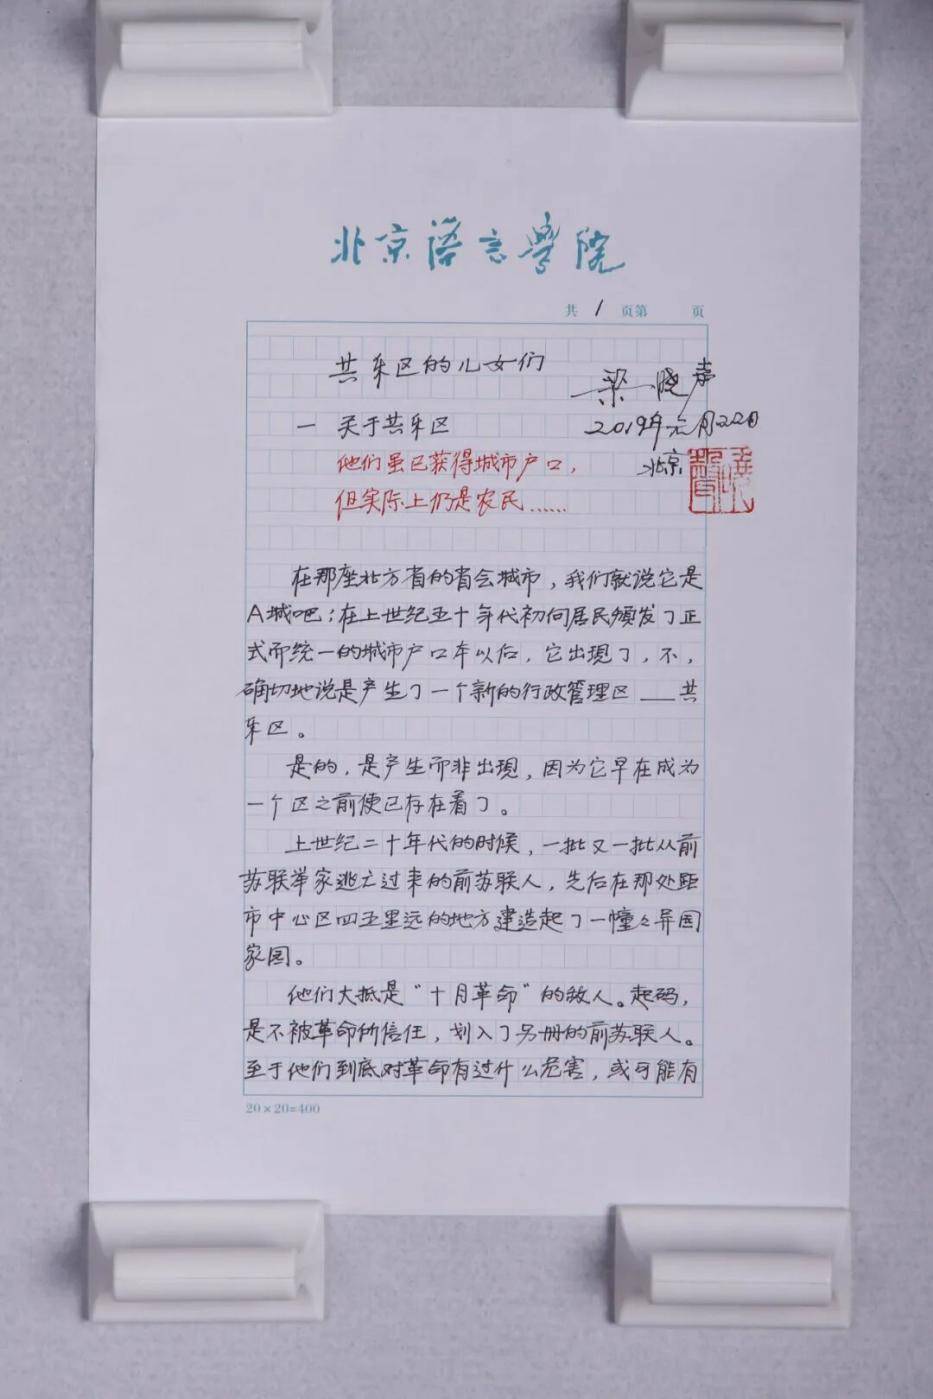 北京语言学院
共 1 页第 页
共乐区的儿女们
梁晓声
一 关于共乐区
2019年元月22日
他们虽已获得城市户口，
北京
但实际上仍是农民……
在那座北方省的省会城市，我们就说它是
A城吧；在上世纪五十年代初向居民颁发了正
式而统一的城市户口本以后，它出现了，不，
确切地说是产生了一个新的行政管理区——共
乐区。
是的，是产生而非出现，因为它早在成为
一个区之前便已存在着了。
上世纪二十年代的时候，一批又一批从前
苏联举家逃亡过来的前苏联人，先后在那处距
市中心区四五里远的地方建造起了一幢々异国
家园。
他们大抵是“十月革命”的敌人。起码，
是不被革命所信任，划入了另册的前苏联人。
至于他们到底对革命有过什么危害，或可能有
20×20=400